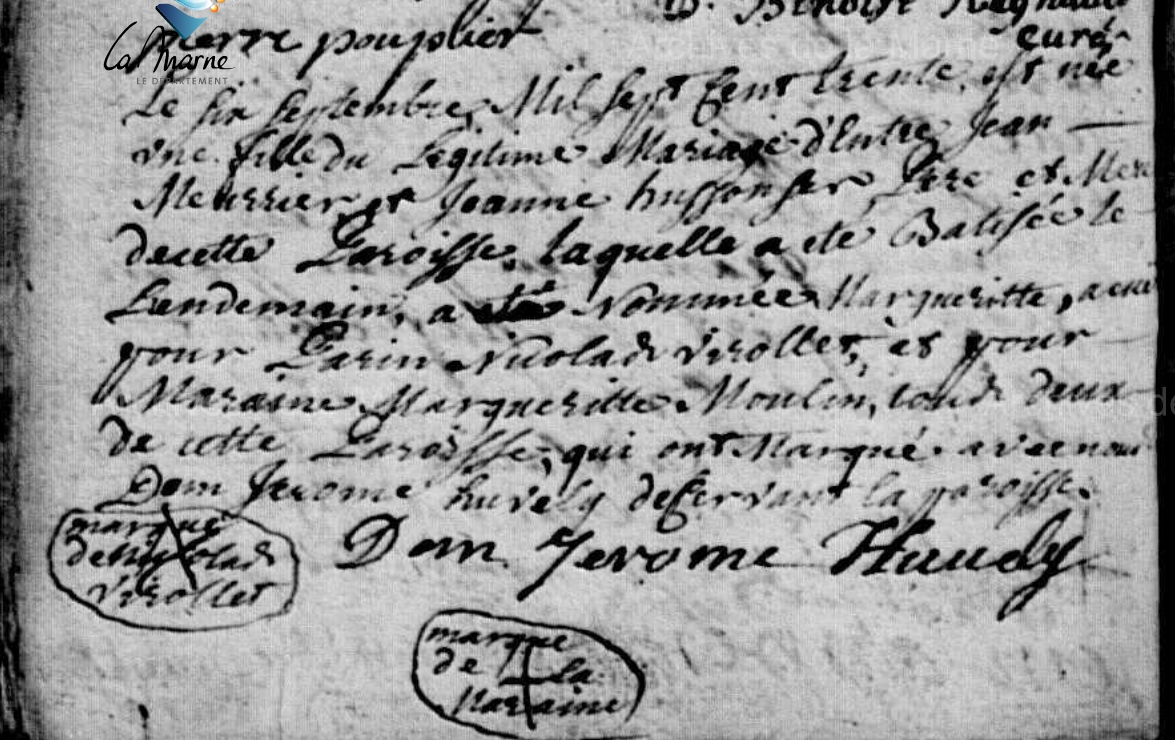 D. Benoist Regnault
pierre pouplier curé
La Marne
LE DÉPARTEMENT
Le six septembre Mil sept cent trente, est née
vne fille du Legitime Mariage d'Entre Jean
Meusnier et Joanne husson ses Pere et Mere
de cette Paroisse, laquelle a eté Batisée le
Lendemain, a eté Nommée Margueritte, a eut
pour Parin Nicolas virollet, et pour
Maraine Margueritte Moulin, tous deux
de cette Paroisse, qui ont Marqué avec nous
Dom Jerome desservant la paroisse.
marque
de nicolas
virollet
Dom Jerome
marque
de la
Maraine